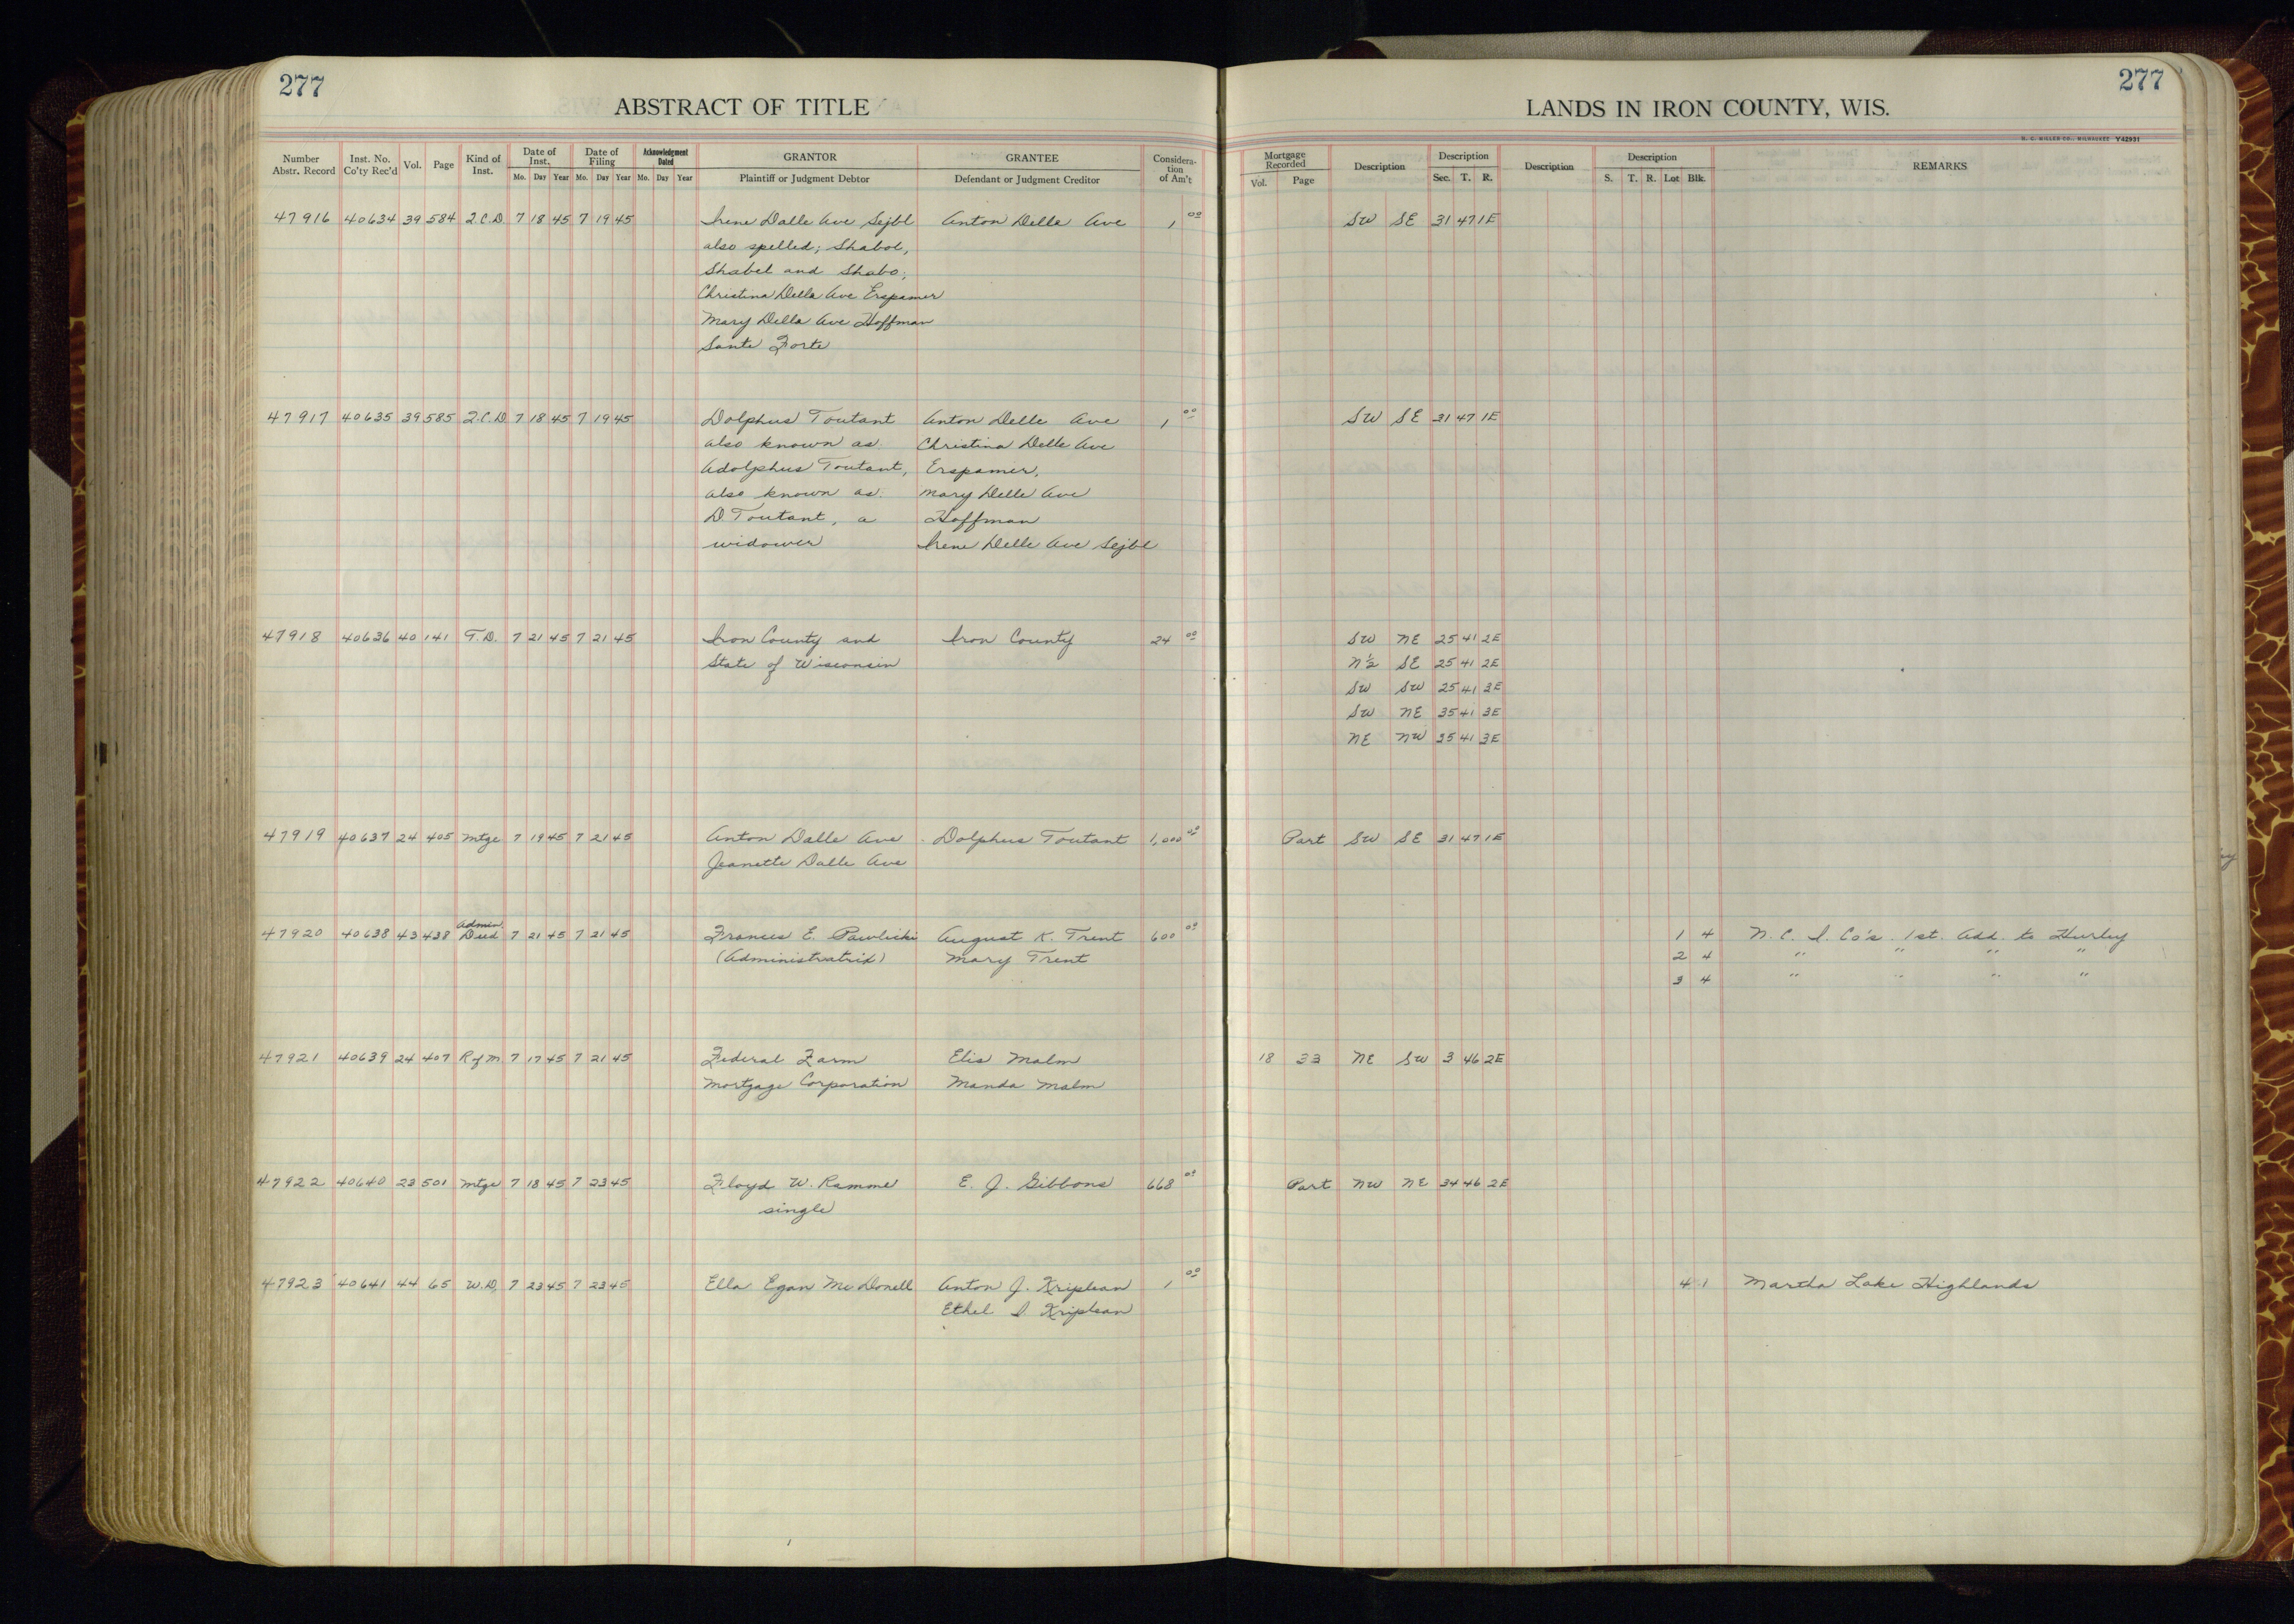 277
277
ABSTRACT OF TITLE
LANDS IN IRON COUNTY, WIS.
H. C. MILLER CO., MILWAUKEE Y42931
Number Abstr. Record | Inst. No. Co'ty Rec'd | Vol. | Page | Kind of Inst. | Date of Inst. Mo. Day Year | Date of Filing Mo. Day Year | Acknowledgment Dated Mo. Day Year | GRANTOR Plaintiff or Judgment Debtor | GRANTEE Defendant or Judgment Creditor | Consideration of Am't | Mortgage Recorded Vol. Page | Description | Description Sec. T. R. | Description | Description S. T. R. Lot Blk. | REMARKS
47916 40634 39 584 Q.C.D 7 18 45 7 19 45 Irene Dalle Ave Sejbl Anton Delle Ave 1 00 SW SE 31 47 1E
also spelled; Shabol,
Shabel and Shabo,
Christina Della Ave Erspamer
Mary Della Ave Hoffman
Sante Forte
47917 40635 39 585 Q.C.D 7 18 45 7 19 45 Dolphus Toutant Anton Delle Ave 1 00 SW SE 31 47 1E
also known as Christina Delle Ave
Adolphus Toutant, Erspamer,
also known as Mary Delle Ave
D. Toutant, a Hoffman
widower Irene Delle Ave Sejbl
47918 40636 40 141 T.D. 7 21 45 7 21 45 Iron County and Iron County 24 00 SW NE 25 41 2E
State of Wisconsin N½ SE 25 41 2E
SW SW 25 41 3E
SW NE 35 41 3E
NE NW 35 41 3E
47919 40637 24 405 Mtge 7 19 45 7 21 45 Anton Dalle Ave Dolphus Toutant 1,000 00 Part SW SE 31 47 1E
Jeanette Dalle Ave
47920 40638 43 438 Admin. Deed 7 21 45 7 21 45 Frances E. Pawlicki August K. Trent 600 00 1 4 N. C. I. Co's. 1st. Add. to Hurley
(Administratrix) Mary Trent 2 4 " " " "
3 4 " " " "
47921 40639 24 407 R of M 7 17 45 7 21 45 Federal Farm Elis Malm 18 33 NE SW 3 46 2E
Mortgage Corporation Manda Malm
47922 40640 23 501 Mtge 7 18 45 7 23 45 Floyd W. Ramme E. J. Gibbons 668 00 Part NW NE 34 46 2E
single
47923 40641 44 65 W.D. 7 23 45 7 23 45 Ella Egan McDonell Anton J. Kriplean 1 00 4 1 Martha Lake Highlands
Ethel I Kriplean